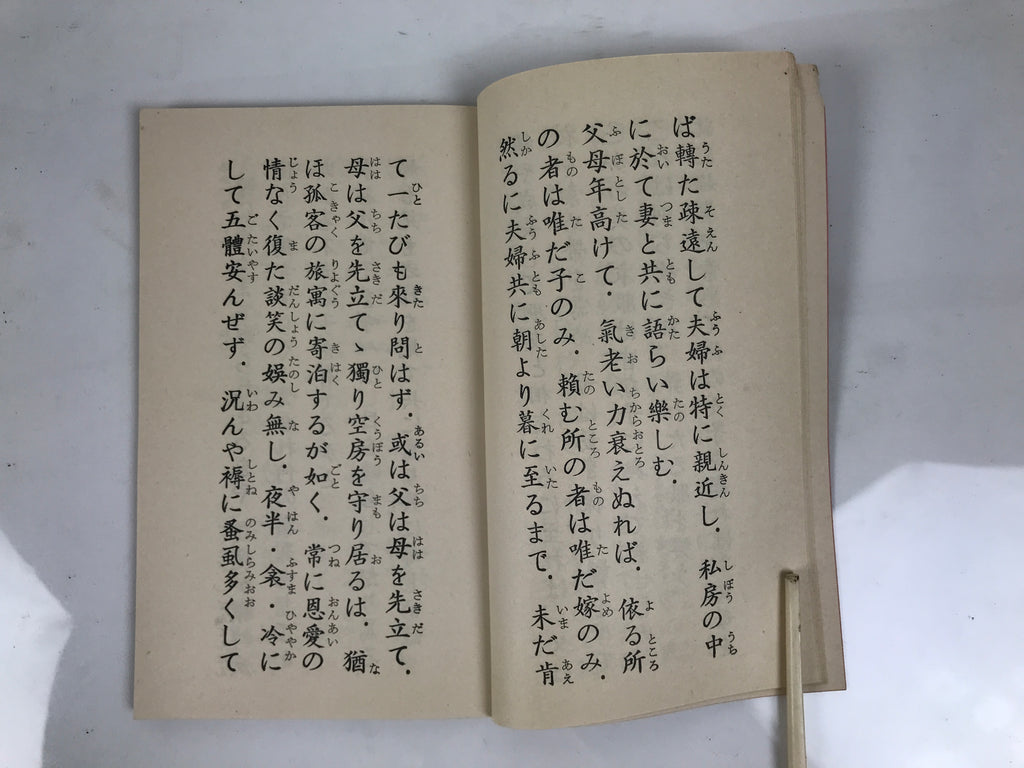 ば轉た疎遠して夫婦は特に親近し．私房の中
に於て妻と共に語らい樂しむ．
父母年高けて．氣老い力衰えぬれば．依る所
の者は唯だ子のみ．賴む所の者は唯だ嫁のみ．
然るに夫婦共に朝より暮に至るまで．未だ肯
て一たびも來り問はず．或は父は母を先立て．
母は父を先立てゝ獨り空房を守り居るは．猶
ほ孤客の旅寓に寄泊するが如く．常に恩愛の
情なく復た談笑の娯み無し．夜半．衾．冷に
して五體安んぜず．況んや褥に蚤虱多くして